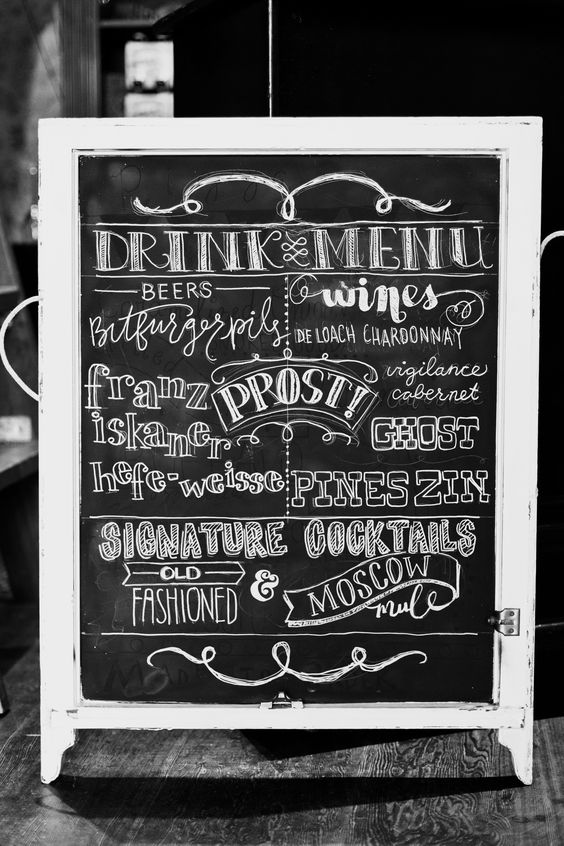 DRINK MENU
BEERS
Bitburgerpils
franz
iskaner
hefe-weisse
PROST!
wines
DE LOACH CHARDONNAY
vigilance
cabernet
GHOST
PINES ZIN
SIGNATURE COCKTAILS
OLD
FASHIONED
&
MOSCOW
mule